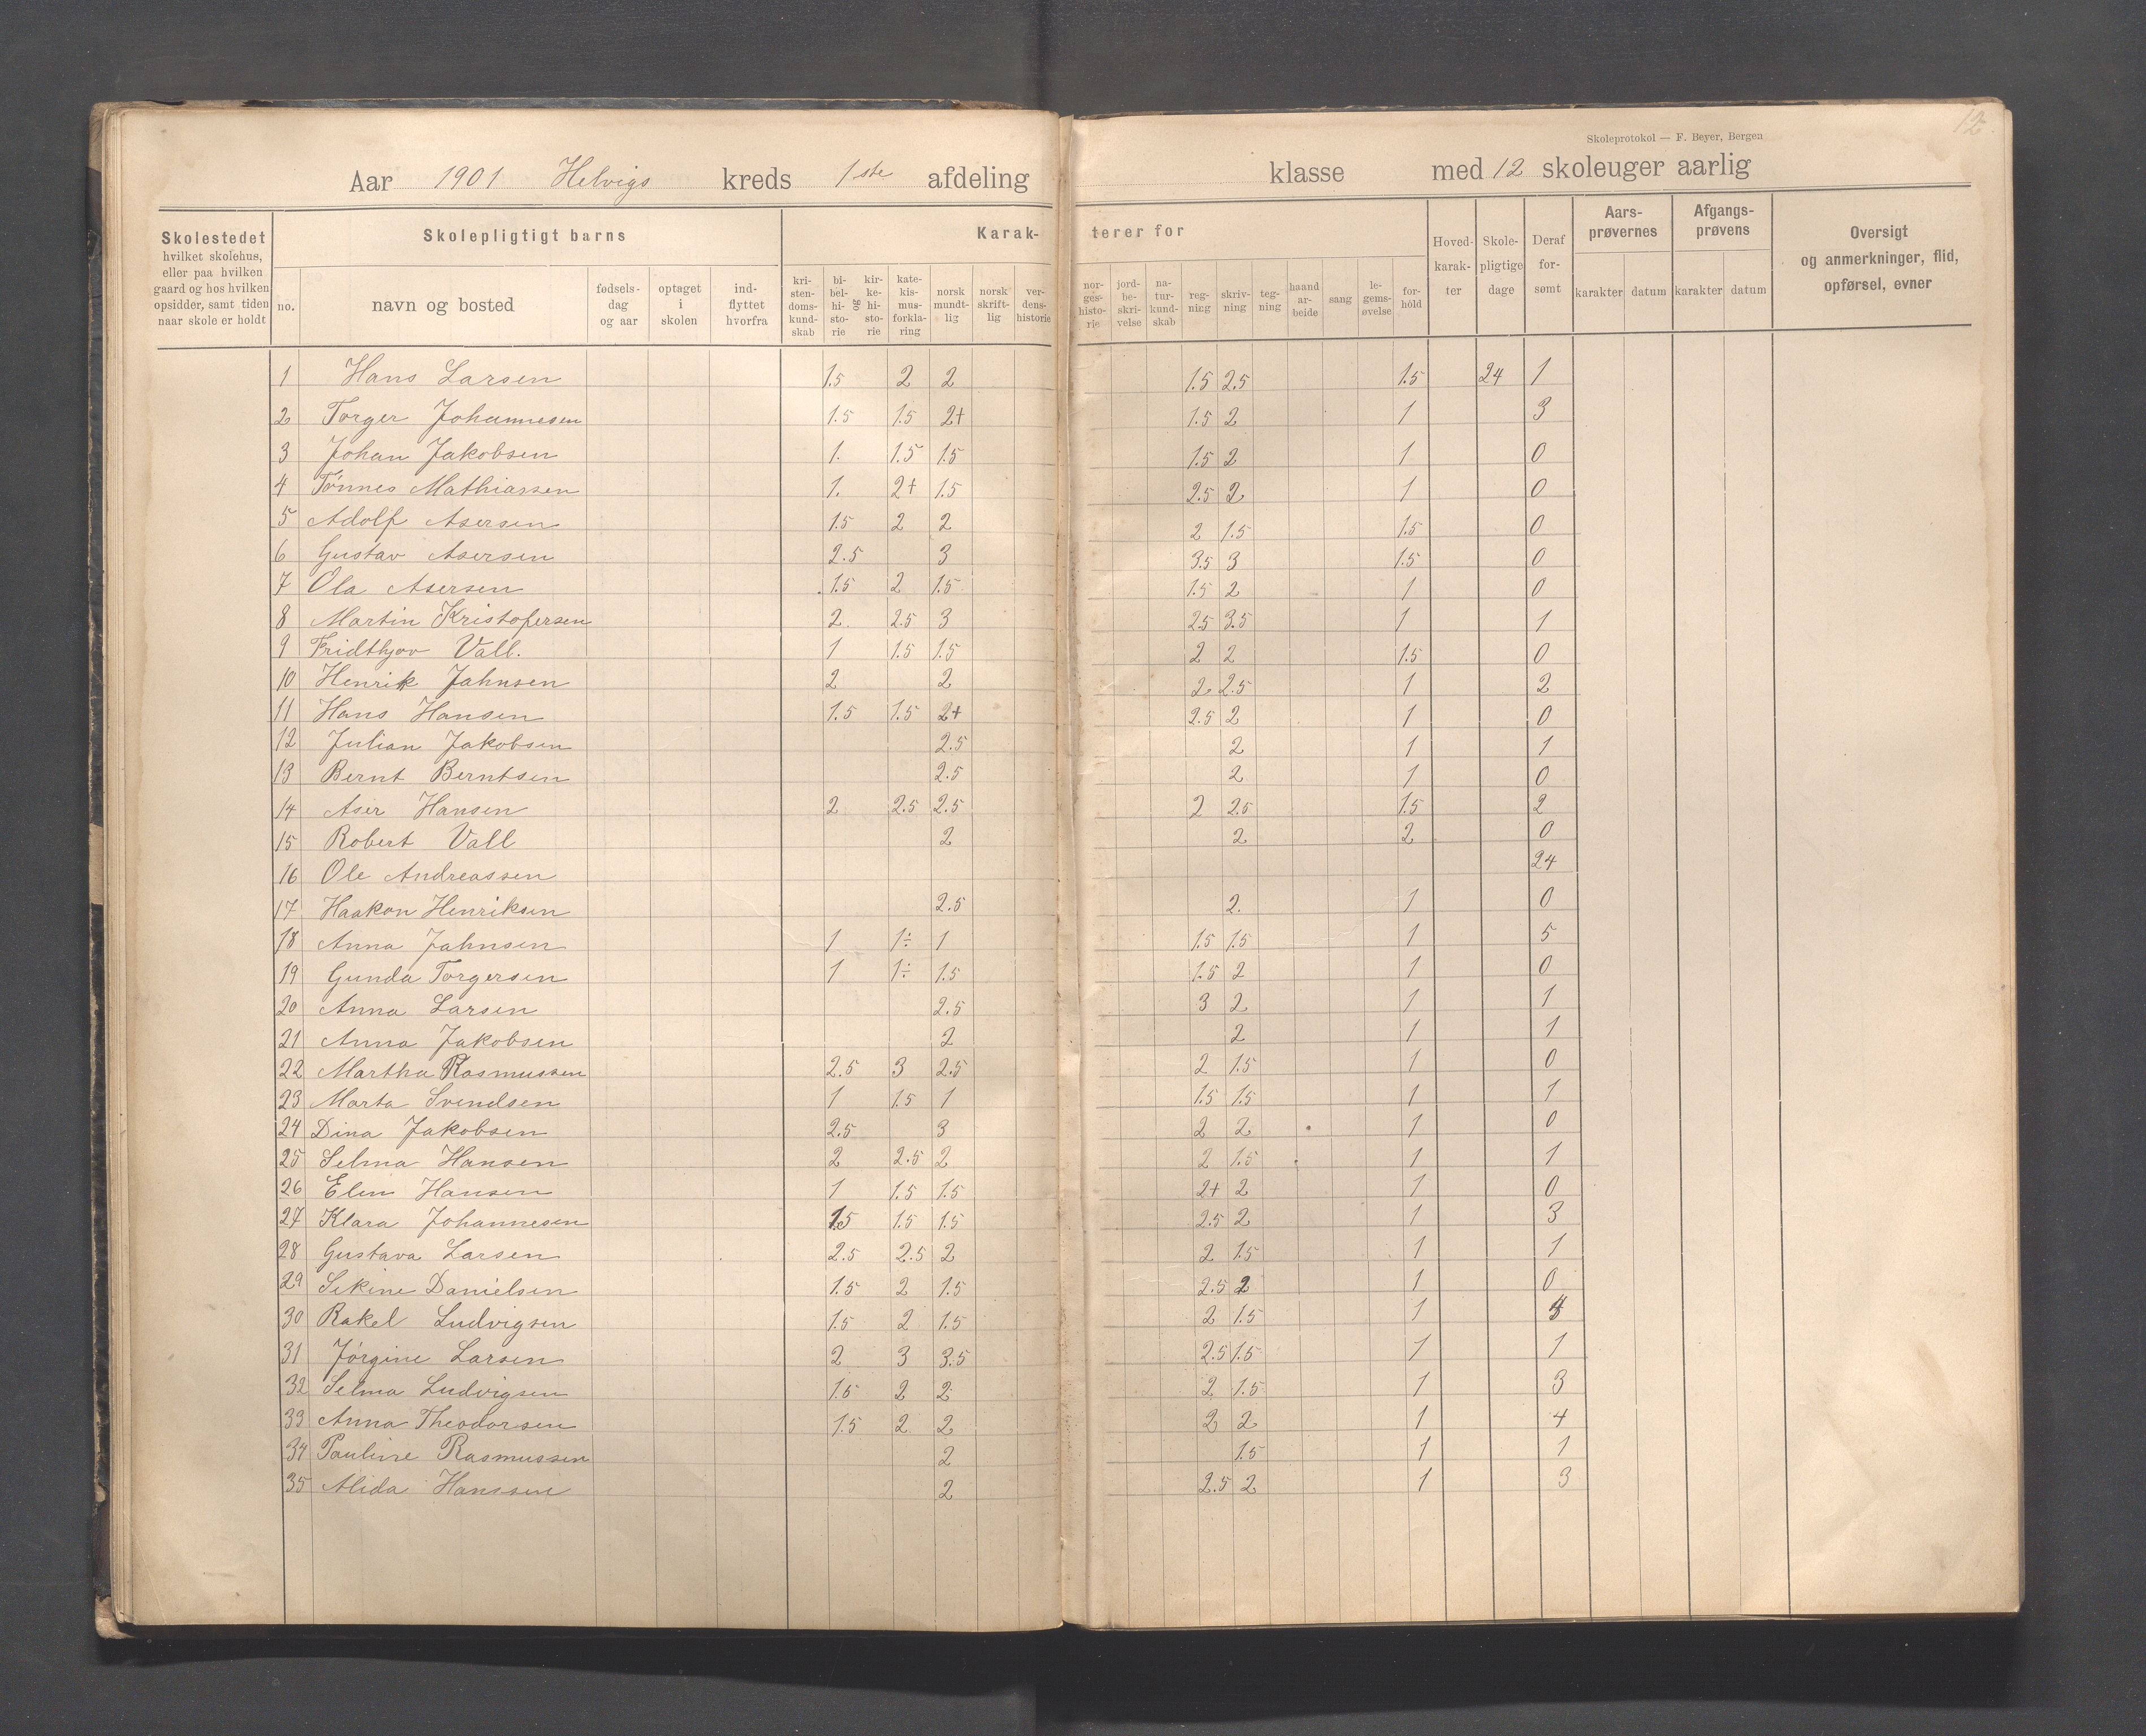 12.
Skoleprotokol — F. Beyer, Bergen
Aar 1901 Helvigs kreds 1ste afdeling klasse med 12 skoleuger aarlig
Skolestedet hvilket skolehus, eller paa hvilken gaard og hos hvilken opsidder, samt tiden naar skole er holdt
Skolepligtigt barns
no. navn og bosted fødsels-dag og aar optaget i skolen ind-flyttet hvorfra
Karak-terer for
kri-sten-doms-kund-skab bi-bel-hi-sto-rie og kir-ke-hi-sto-rie kate-kis-mus-forkla-ring norsk mundt-lig norsk skrift-lig ver-dens-historie nor-ges-histo-rie jord-be-skri-velse na-tur-kund-skab reg-ning skriv-ning teg-ning haand ar-beide sang le-gems-øvelse for-hold
Hoved-karak-ter Skole-pligtige dage Deraf for-sømt
Aars-prøvernes karakter datum
Afgangs-prøvens karakter datum
Oversigt og anmerkninger, flid, opførsel, evner
1 Hans Larsen 1.5 2 2 1.5 2.5 1.5 24 1
2 Torger Johannesen 1.5 1.5 2+ 1.5 2 1 3
3 Johan Jakobsen 1. 1.5 1.5 1.5 2 1 0
4 Tönnes Mathiassen 1. 2+ 1.5 2.5 2 1 0
5 Adolf Asersen 1.5 2 2 2 1.5 1.5 0
6 Gustav Asersen 2.5 3 3.5 3 1.5 0
7 Ola Asersen 1.5 2 1.5 1.5 2 1 0
8 Martin Kristofersen 2. 2.5 3 2.5 3.5 1 1
9 Fridthjov Vall. 1 1.5 1.5 2 2 1.5 0
10 Henrik Jahnsen 2 2 2 2.5 1 2
11 Hans Hansen 1.5 1.5 2+ 2.5 2 1 0
12 Julian Jakobsen 2.5 2 1 1
13 Bernt Berntsen 2.5 2 1 0
14 Aser Hansen 2 2.5 2.5 2 2.5 1.5 2
15 Robert Vall 2 2 2 0
16 Ole Andreassen 24
17 Haakon Henriksen 2.5 2. 1 0
18 Anna Jahnsen 1 1÷ 1 1.5 1.5 1 5
19 Gunda Torgersen 1 1÷ 1.5 1.5 2 1 0
20 Anna Larsen 2.5 3 2 1 1
21 Anna Jakobsen 2 2 1 1
22 Martha Rasmussen 2.5 3 2.5 2 1.5 1 0
23 Marta Svendsen 1 1.5 1 1.5 1.5 1 1
24 Dina Jakobsen 2.5 3 2 2 1 0
25 Selma Hansen 2 2.5 2 2 1.5 1 1
26 Elen Hansen 1 1.5 1.5 2+ 2 1 0
27 Klara Johannesen 1.5 1.5 1.5 2.5 2 1 3
28 Gustava Larsen 2.5 2.5 2 2 1.5 1 1
29 Sekine Danielsen 1.5 2 1.5 2.5 2 1 0
30 Rakel Ludvigsen 1.5 2 1.5 2 1.5 1
31 Jörgine Larsen 2 3 3.5 2.5 1.5 1 1
32 Selma Ludvigsen 1.5 2 2 2 1.5 1 3
33 Anna Theodorsen 1.5 2 2 2 2 1 4
34 Pauline Rasmussen 2 1.5 1 1
35 Alida Hanssen 2 2.5 2 1 3